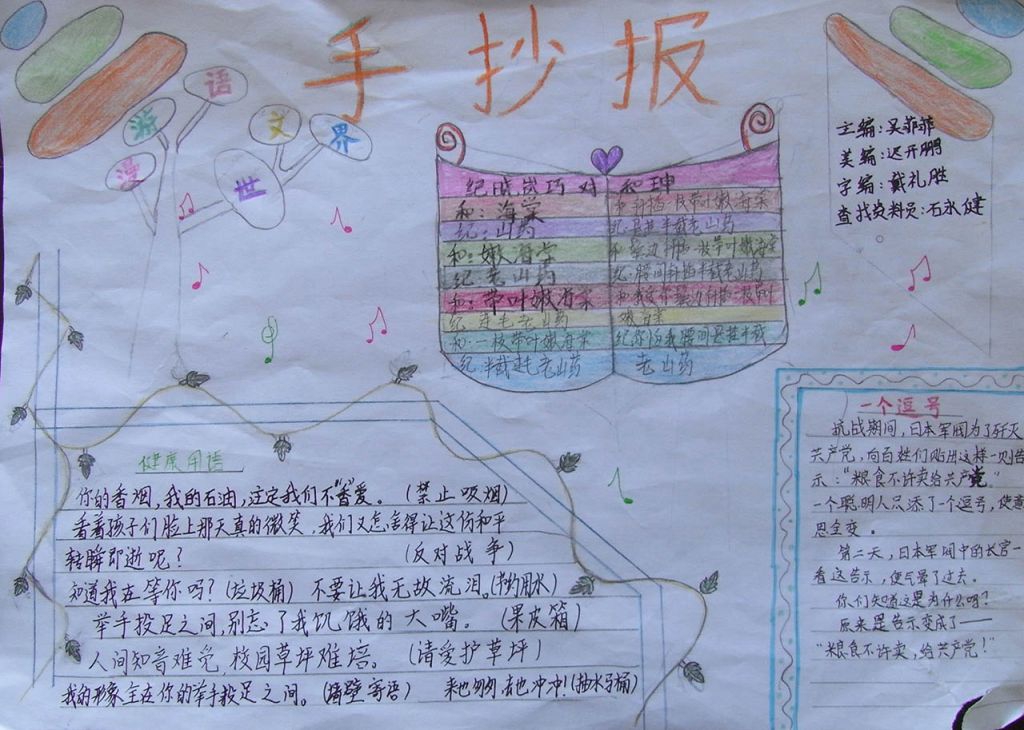 手抄报
漫游语文世界
主编:吴菲菲
美编:迟开鹏
字编:戴礼胜
查找资料员:石永健
纪晓岚巧对
和珅
和:海棠
纪:山药
和:嫩海棠
纪:老山药
和:带叶嫩海棠
纪:连毛老山药
和:一枝带叶嫩海棠
纪:半截连毛老山药
老山药
健康用语
你的香烟,我的石油,注定我们不“香”爱。(禁止吸烟)
看着孩子们脸上那天真的微笑,我们又怎舍得让这份和平
转瞬即逝呢?(反对战争)
知道我在等你吗?(垃圾桶) 不要让我无故流泪。(节约用水)
举手投足之间,别忘了我饥饿的大嘴。(果皮箱)
人间知音难觅,校园草坪难培。(请爱护草坪)
我的形象全在你的举手投足之间。(墙壁寄语) 来也匆匆,去也冲冲!(抽水马桶)
一个逗号
抗战期间,日本军阀为了歼灭
共产党,向百姓们贴出这样一则告
示:“粮食不许卖给共产党”
一个聪明人只添了一个逗号,使意
思全变。
第二天,日本军阀中的长官一
看这告示,便气晕了过去。
你们知道这是为什么吗?
原来是告示变成了——
“粮食不许卖,给共产党!”